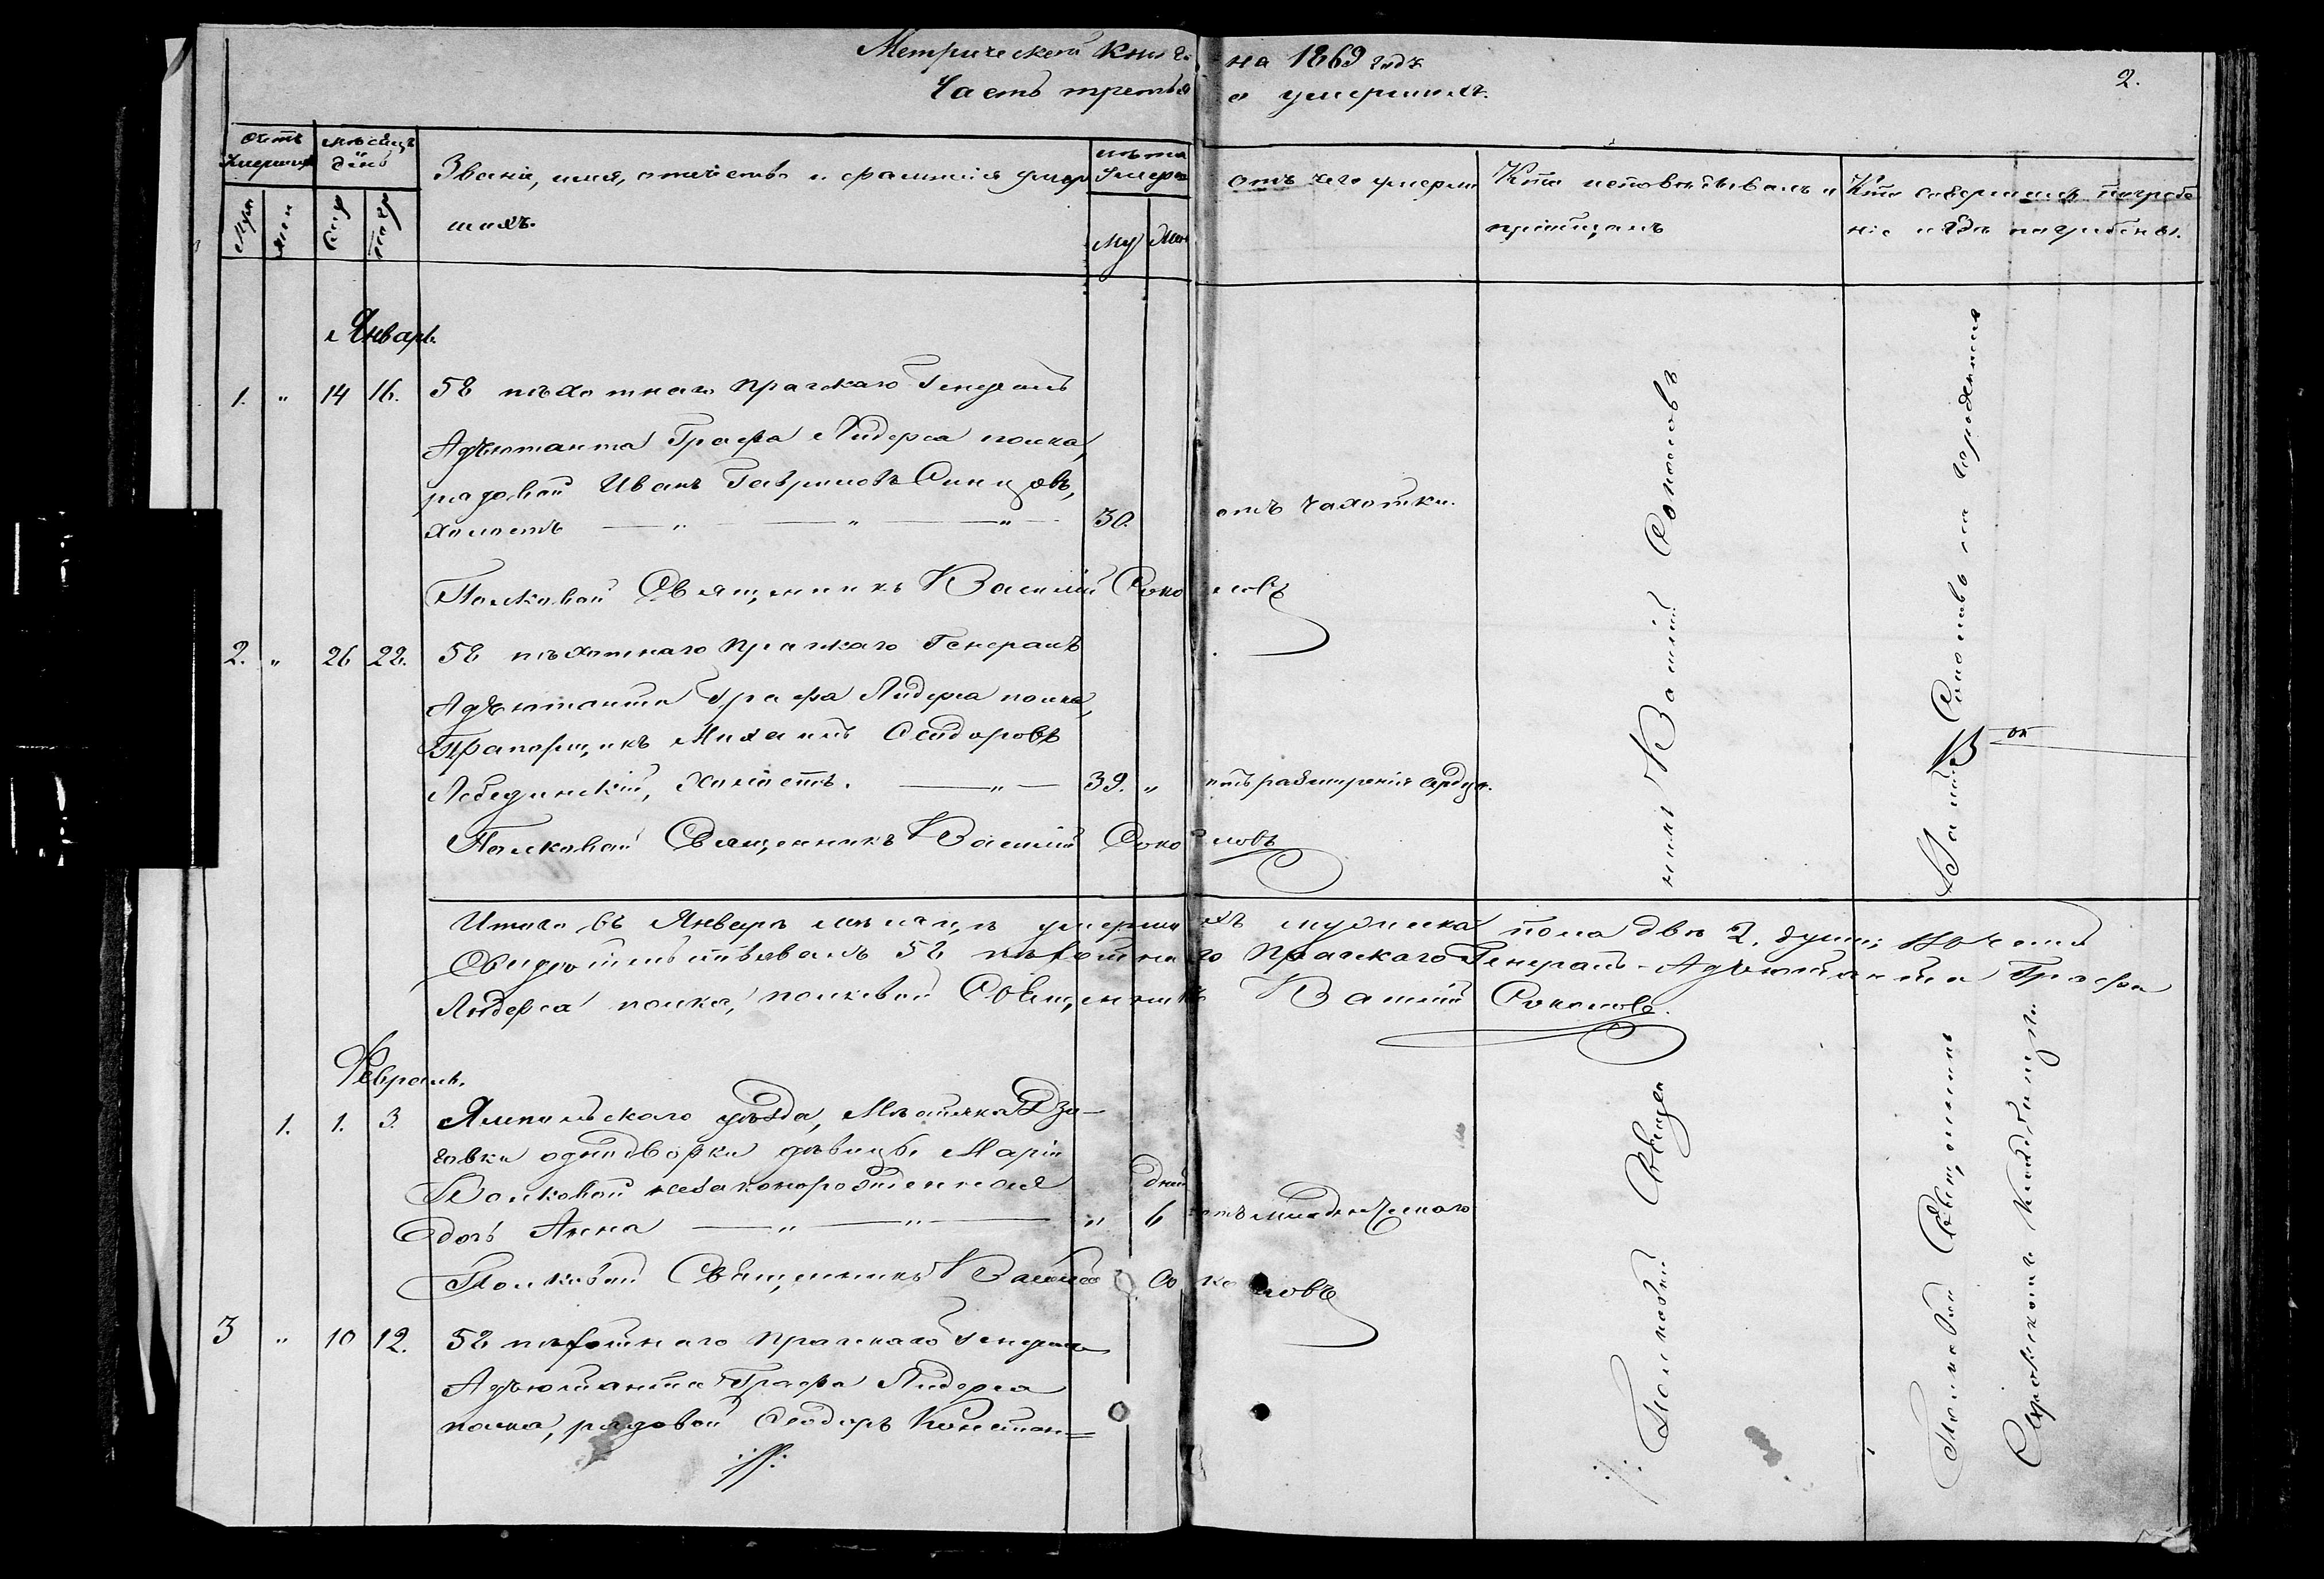 Метрической книги на 1869 годъ
Часть третья о умершихъ.
2.
Счетъ умершихъ
мѣсяцъ день
Званіе, имя, отчество и фамилія умер
шихъ.
лѣта умерш
Муж
Жен
Му
Жен
отъ чего умерли
Кто исповѣдывалъ и
пріобщалъ
Кто совершалъ погребе
ніе и гдѣ погребены.
Январь.
1. " 14 16. 58 пѣхотнаго Прагскаго Генералъ
Адъютанта Графа Лидерса полка,
рядовой Иванъ Гавриловъ Синцовъ,
холостъ — " — " — " — 30. отъ чахотки.
Полковой Священникъ Василій Соколовъ
2. " 26 28. 58 пѣхотнаго Прагскаго Генералъ
Адъютанта Графа Лидерса полка,
Прапорщикъ Михаилъ Сидоровъ
Лебединскій, холостъ. — " — 39. " отъ расширенія сердца.
Полковой Священникъ Василій Соколовъ
Итого въ Январѣ мѣсяцѣ умершихъ мужеска пола двѣ 2. души;
Свидѣтельствовалъ 58 пѣхотнаго Прагскаго Генералъ-Адъютанта Графа
Лидерса полка, полковой Священникъ Василій Соколовъ.
Февраль.
1. 1. 3. Ямпольскаго уѣзда, Мѣстечка Дзы
говки однодворки дѣвицы Маріи
Волковой незаконорожденная дней
дочь Анна — " — " — " 6 отъ младенческаго
Полковой Священникъ Василій Соколовъ
3 " 10 12. 58 пѣхотнаго Прагскаго Генералъ
Адъютанта Графа Лидерса
полка, рядовой Федоръ Констан=
://:
:/: Полковой Священникъ Василій Соколовъ
Полковой Священникъ Василій Соколовъ на городскомъ
кладбищѣ